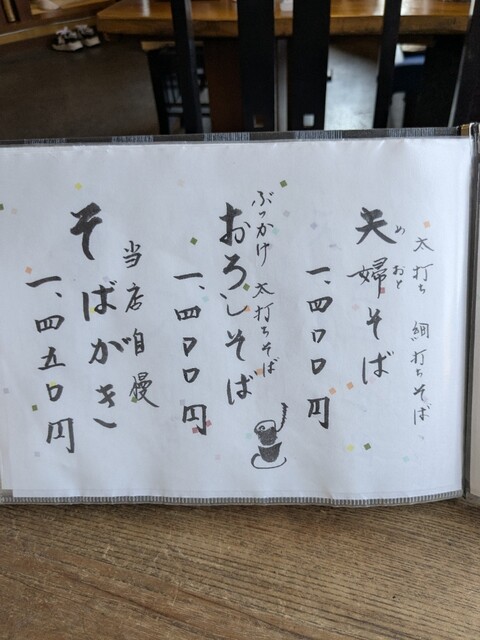 太打ち 細打ちそば、
めおと
夫婦そば
一、四〇〇円
ぶっかけ 太打ちそば
おろしそば
一、四〇〇円
当店自慢
そばがき
一、四五〇円